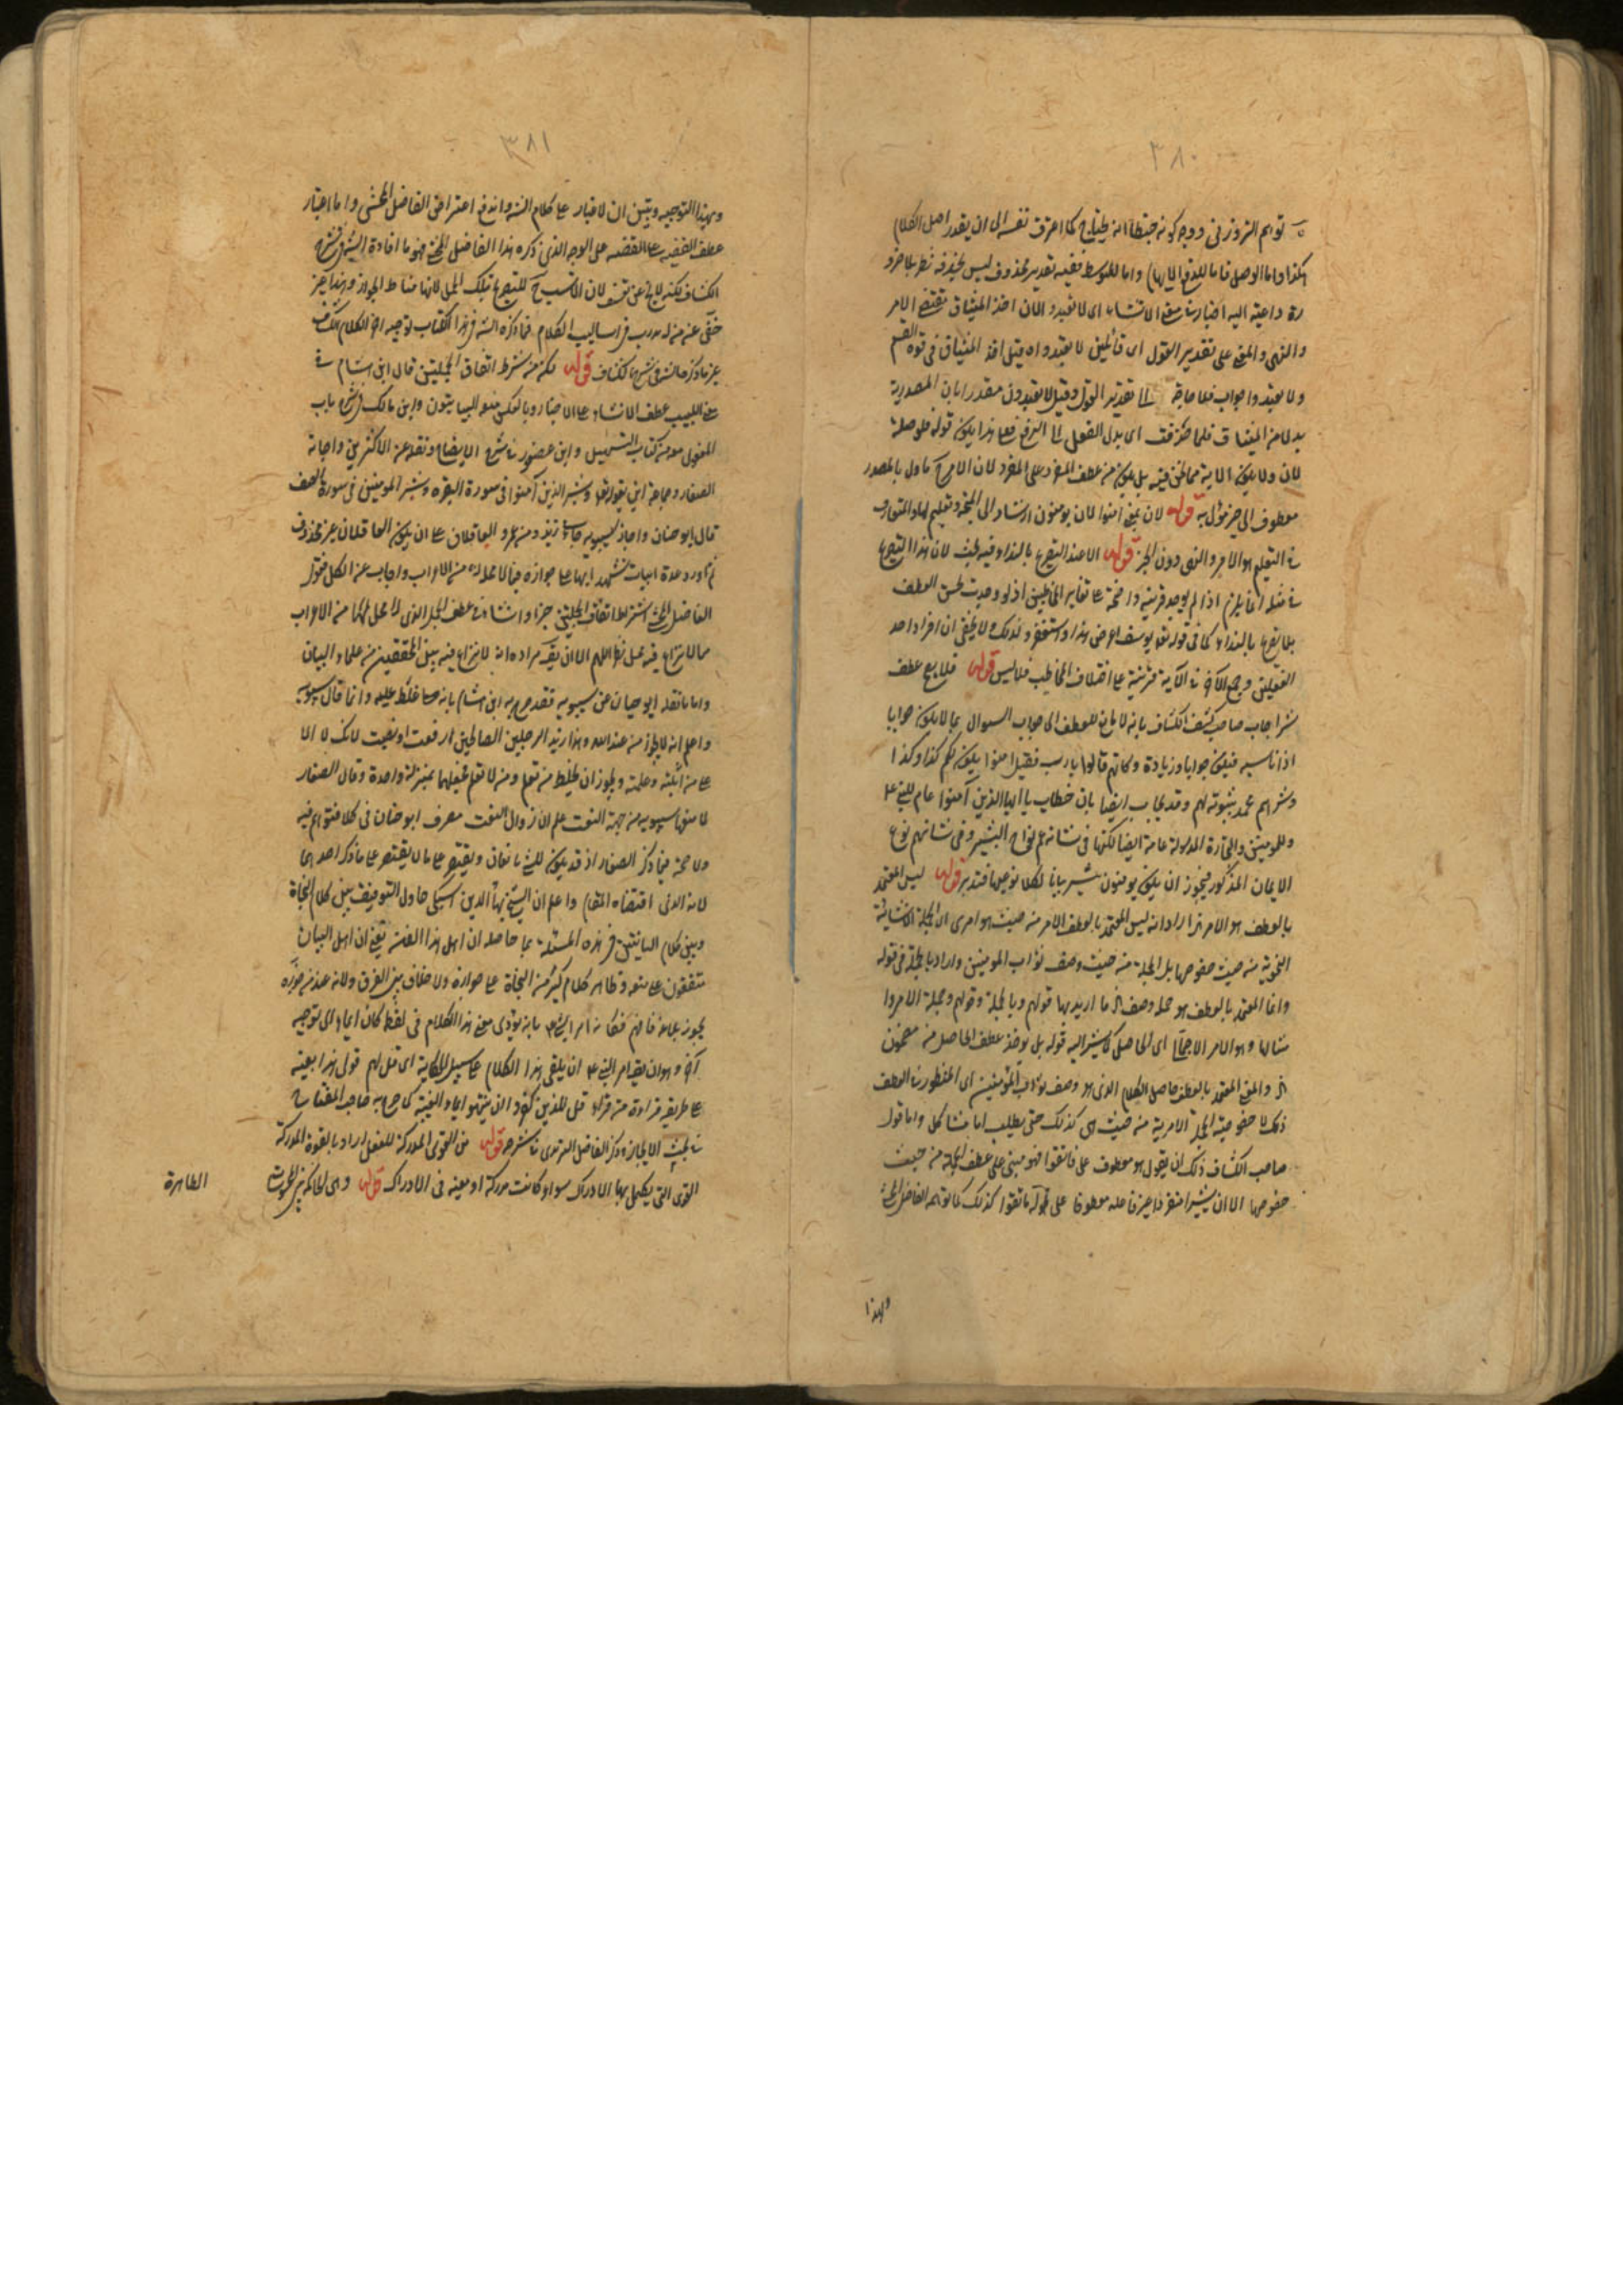 ٣٨٠
توهم التزوز في ووجه كونه خبطا انه يحتاج كما اعترف نفسه الى ان يقدر اصل الكلام
هكذا واما الوصل فاما للدفع الايهام واما للتوسط ففيه تقدير محذوف ليس لحذفه نظر بلا ضرو
رة داعية اليه اخبار في معنى الانشاء اى لا تعبدوا لان اخذ الميثاق يقتضى الامر
والنهى والمعنى على تقدير القول اى قائلين لا تعبدوا او قيل اخذ الميثاق في قوة القسم
ولا تعبدوا جوابه فلا حاجة الى تقدير القول وقيل لا تعبدون مقدر بان المصدرية
بدلا من الميثاق فلما حذفت ان بدل الفعل الى الرفع فعلى هذا يكون قوله
لان ولا يكون الاية مما نحن فيه بل يكون من عطف المفرد على المفرد لان الامر ح ماول بالمصدر
معطوف الى خبر مؤل به قوله لان بمعنى آمنوا لان يومنون ارشاد الى النجة وتعليم لها والمتعارف
في التعليم هو الامر والنهى دون الخبر قوله الا عند التصريح بالنداء وفيه بحث لان هذا التصريح
في مثله انما يلزم اذا لم يوجد قرينة واضحة على تغاير المخاطبين اذ لو وجدت لحسن العطف
بلا تصريح بالنداء كما في قوله تعالى يوسف اعرض عن هذا واستغفرى لذنبك ولا يخفى ان افراد احد
الفعلين وجمع الآخر في الآية قرينة على اختلاف المخاطب فلا لبس قوله فلا يصح عطف
بشر اجاب صاحب كشف الكشاف بانه لا مانع للعطف الى جواب السؤال بما لا يكون جوابا
اذا ناسبه فيكون جوابا وزيادة وكانهم قالوا يا رب فقيل آمنوا يكون لكم كذا وكذا
وبشرهم يا محمد بثبوته لهم وقد يجاب ايضا بان خطاب يا ايها الذين آمنوا عام للنبى ع م
وللمومنين والتجارة المدلولة عامة ايضا لكنها في شانه ع م التبشير وفي شانهم نوع
الايمان المذكور فيجوز ان يكون يومنون وبشر بيانا لكلا نوعيها فتدبر قوله ليس المعتمد
بالعطف هو الامر اراد انه ليس المعتمد بالعطف الامر من حيث هو امرى اى الجملة الانشائية
النحوية من حيث خصوصها بل الجملة من حيث وصف ثواب المومنين واراد بالجملة في قوله
وانما المعتمد بالعطف هو جملة وصف الخ ما اريد بها قولهم وبالجملة وقولهم وجملة الامر وا
مثالها وهو الامر الاجمالى اى الحاصل كما يشير اليه قوله بل يوخذ عطف الحاصل من مضمون
الخ والمعنى المعتمد بالعطف حاصل الكلام الذى هو وصف ثواب المؤمنين اى المنظور في العطف
ذلك لا خصوصية الجملة الامرية من حيث هى كذلك حتى يطلب لها مشاكل واما قول
صاحب الكشاف ذلك ان يقول هو معطوف على فاتقوا فهو مبنى على عطف الجملة من حيث
خصوصها الا ان بشير اعلى قوله فاتقوا كذلك كما توهمه الفاضل المحشى
وبهذا
٣٨١
وبهذا التوجيه ويتبين ان لا غبار على كلام الش واندفع اعتراض الفاضل المحشى واما اعتبار
عطف القصة على القصة على الوجه الذى ذكره هذا الفاضل المحشى فهو ما افاده الش في شرح
الكشاف لكنه لا يخ عن تعسف لان الانسب ح للتصريح بتلك الجمل لانها مناط الجواز وهذا غير
خفى عند من له درب في اساليب الكلام فما ذكره الش في هذا الكتاب توجيه آخر لكلام الكشاف
غير ما ذكره الش في شرح الكشاف قوله لكنه من شرط اتفاق الجملتين قال ابن هشام في
مغنى اللبيب عطف الانشاء على الاخبار وبالعكس منعه البيانيون وابن مالك في شرح باب
المفعول معه من كتاب التسهيل وابن عصفور في شرح الايضاح ونقله عن الاكثرين واجازه
الصفار وجماعة اين بقوله تعالى وبشر الذين آمنوا في سورة البقرة وبشر المومنين في سورة الصف
قال ابو حيان واجاز سيبويه جاءنى زيد ومن عمرو العاقلان على ان يكون العاقلان خبر محذوف
ثم اورد عدة ابيات تشهد ايها على جوازه فيما لا محل له من الاعراب واجاب عن الكل فتجوز
الفاضل المحشى اشتراط اتفاق الجملتين خبرا وانشاء في عطف الجمل الذى لا محل لها من الاعراب
مما لا نزاع فيه محل نظر اللهم الا ان يق مراده انه لا نزاع فيه بين المحققين من علماء البيان
واما ما نقله ابو حيان عن سيبويه فقد صرح به ابن هشام بانه غلط عليه وانما قال سيبويه
واعلم انه لا يجوز من عبد الله وهذا زيد الرجلين الصالحين رفعت او نصبت لانك لا
على من اثبته وعلمته ولا يجوز ان تخلط من تعلم ومن لا تعلم فتجعلهما بمنزلة واحدة وقال الصفار
لا منعها سيبويه من جهة النعت علم ان زوال النعت مصرف ابو حيان في كلامه فتوهم فيه
ولا حجة فيما ذكر الصفار اذ قد يكون للشئ مانعان ويقتصر على ذكر احدهما
لانه الذى اقتضاه المقام واعلم ان الشيخ بهاء الدين السبكى حاول التوفيق بين كلام النحاة
وبين كلام البيانيين في هذه المسئلة بما حاصله ان اهل هذا الفن يعنى ان اهل البيان
متفقون على منعه وظاهر كلام كثير من النحاة على جوازه ولا خلاف بين الفرق ولانه عند من جوزه
يجوز بلاغة امر النبى ع م بانه يؤدى معنى هذا الكلام في لفظ كان ايماء الى توجيه
آخر وهو ان يقصد امر النبى ع م ان يلقى هذا الكلام على سبيل الحكاية اى قل لهم قولى هذا بعينه
على طريقه قراءة من قراءة قل للذين كفروا ان ينتهوا بالياء والغيبة كما صرح به صاحب المفتاح
في بحث الايجاز وذكر الفاضل الترمذى في شرحه قوله من القوى المدركة للعقل اراد بالقوة المدركة
القوى التى يكمل بها الادراك سواء كانت مدركة او معينة في الادراك قوله وهى الحاكمة بين المحسوسات
الظاهرة